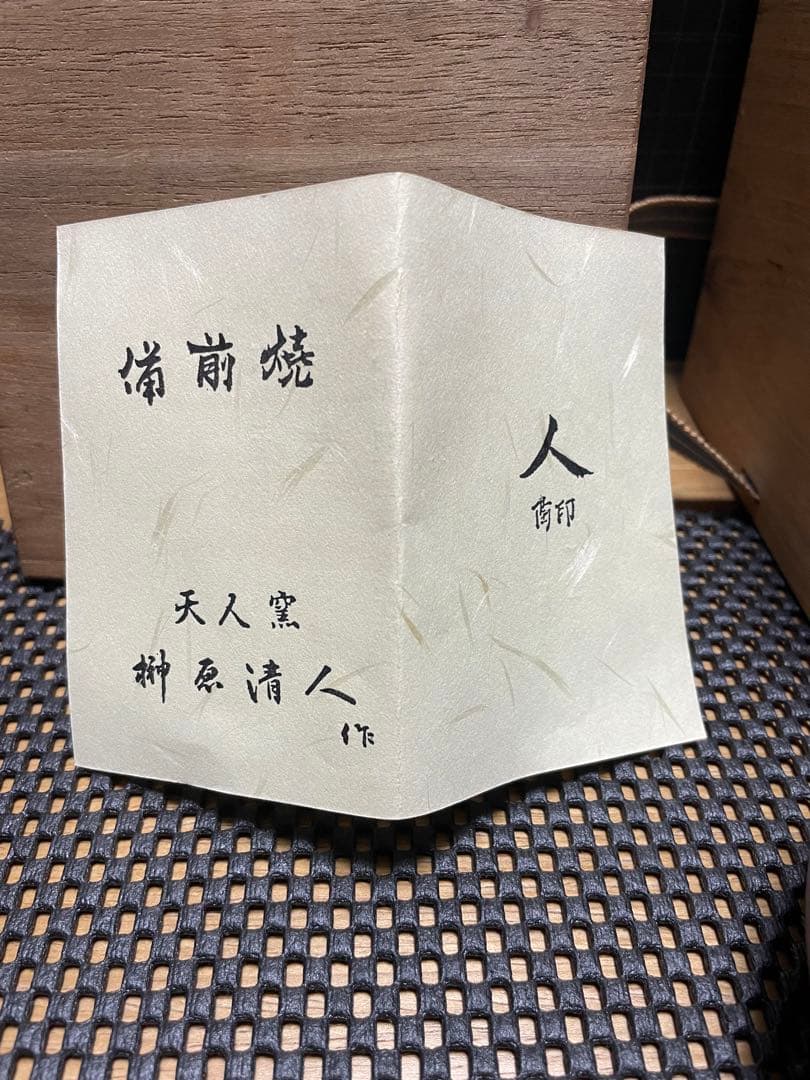 備前焼
天人窯
榊原清人
作
人
窯印